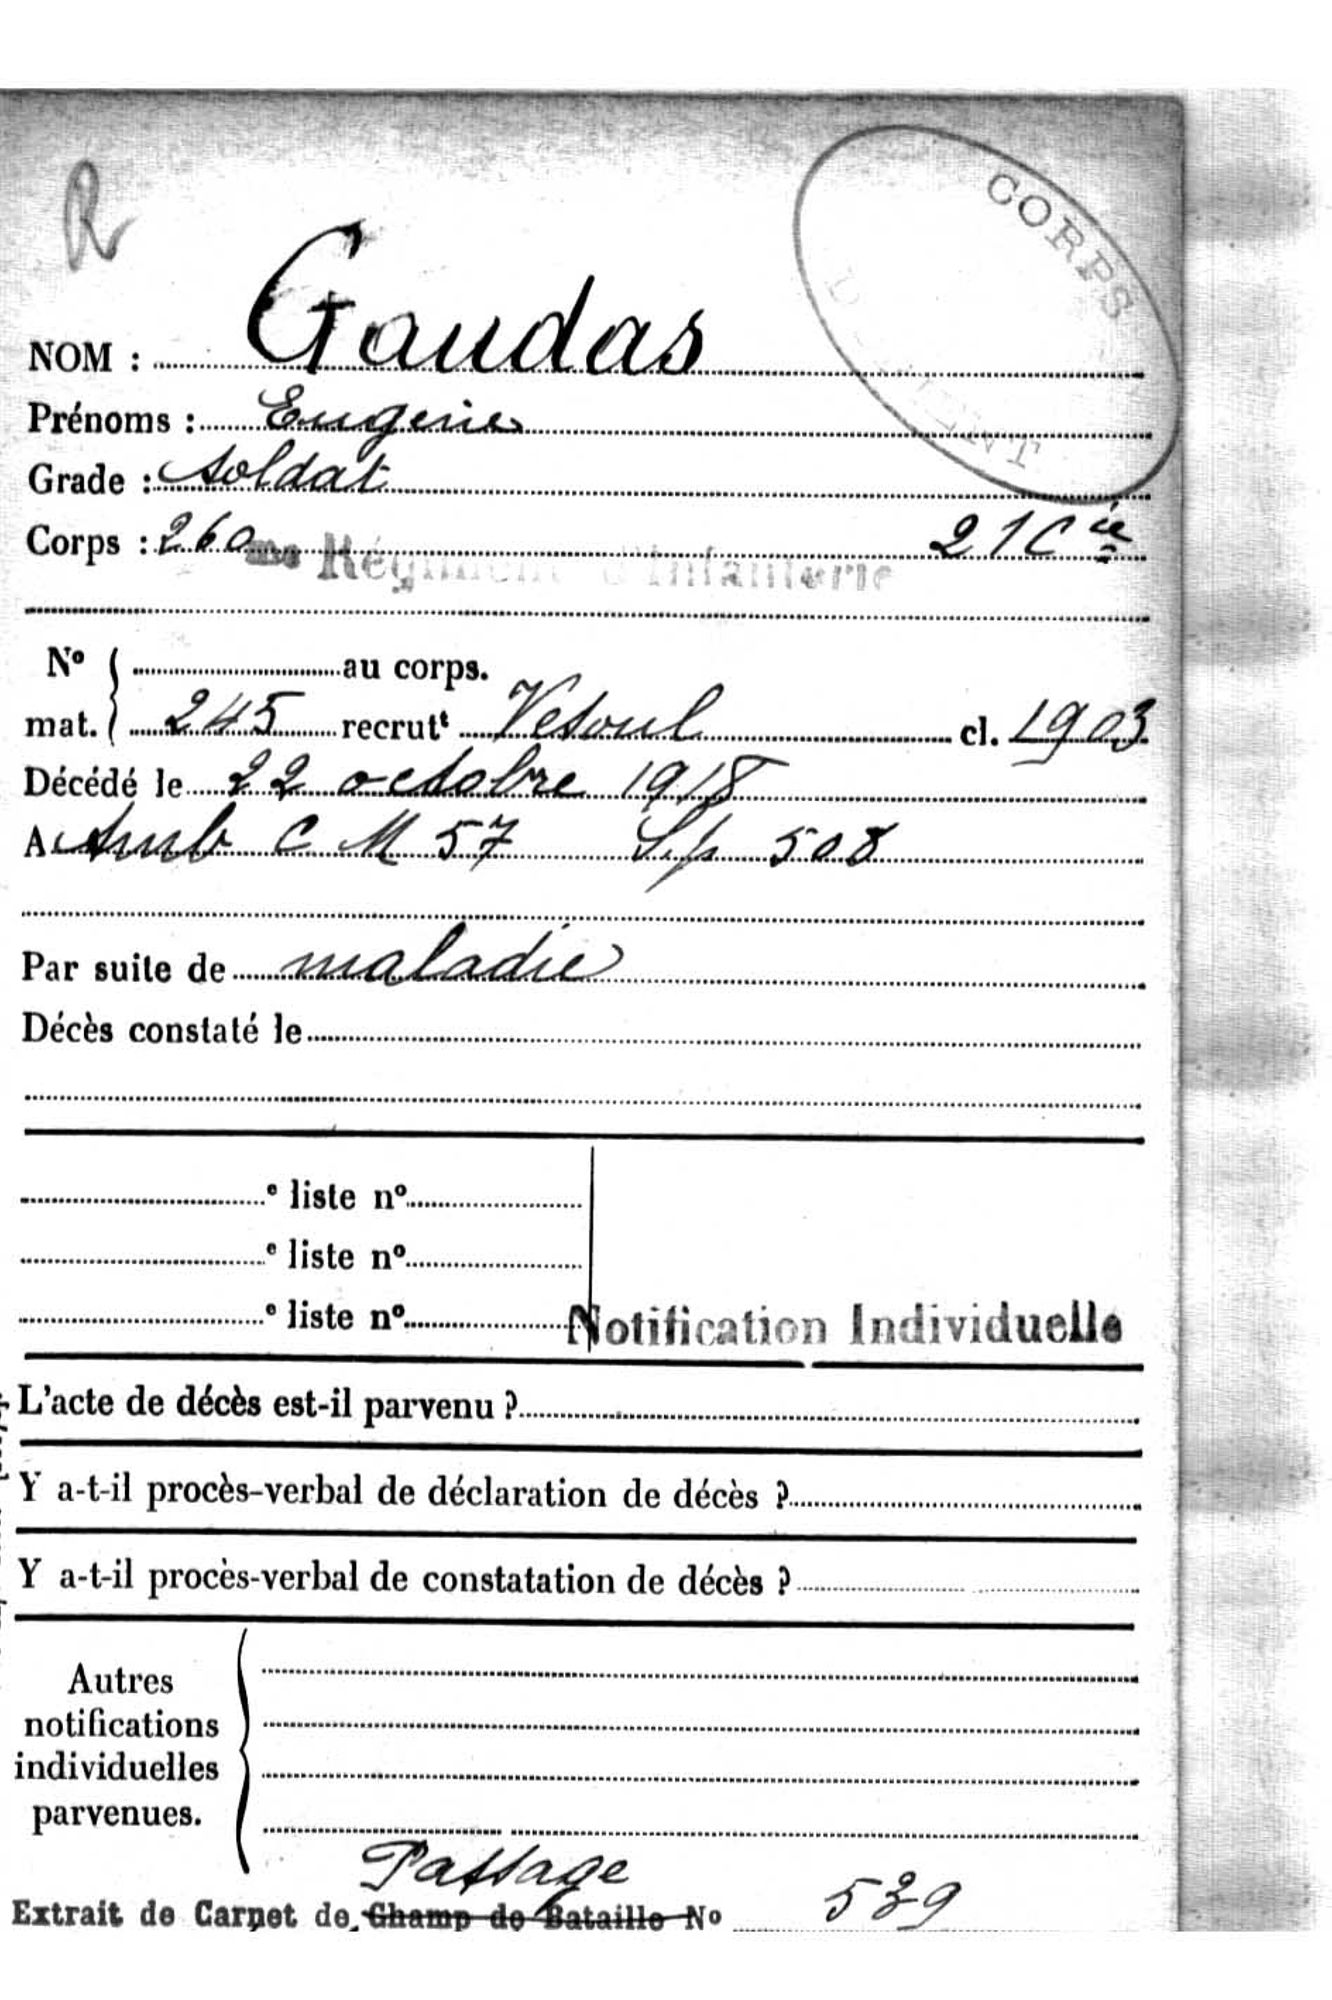 R
CORPS
NOM : Gaudas
Prénoms : Eugène
Grade : Soldat
Corps : 260me Régiment d'Infanterie 21 Cie
No au corps.
mat. 245 recrutt Vesoul cl. 1903
Décédé le 22 octobre 1918
A Amb C M 57 S.p 508
Par suite de maladie
Décès constaté le
e liste no
e liste no
e liste no
Notification Individuelle
L'acte de décès est-il parvenu ?
Y a-t-il procès-verbal de déclaration de décès ?
Y a-t-il procès-verbal de constatation de décès ?
Autres
notifications
individuelles
parvenues.
Passage
Extrait de Carnet de Champ de Bataille No 539